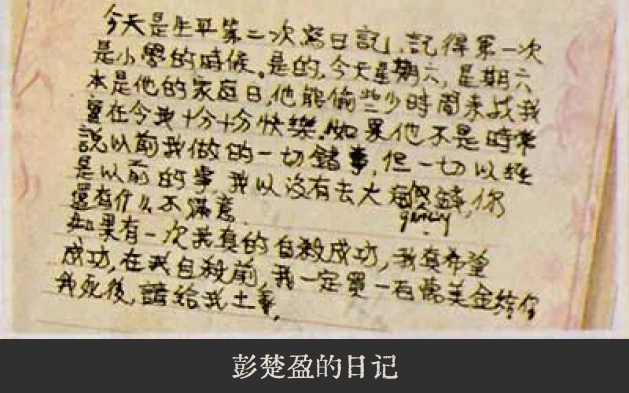 今天是生平第二次寫日記,記得第一次
是小學的時候。是的,今天星期六,星期六
本是他的家庭日,他能偷些少時間來找我
實在令我十分十分快樂。如果他不是時常
說以前我做的一切錯事,但一切以經
是以前的事,我以沒有去大 錢,你
還有什么不滿意.
如果有一次我真的自殺成功,我真希望
成功,在我自殺前,我一定買一百萬美金給你
我死後,請給我土葬.
彭楚盈的日记